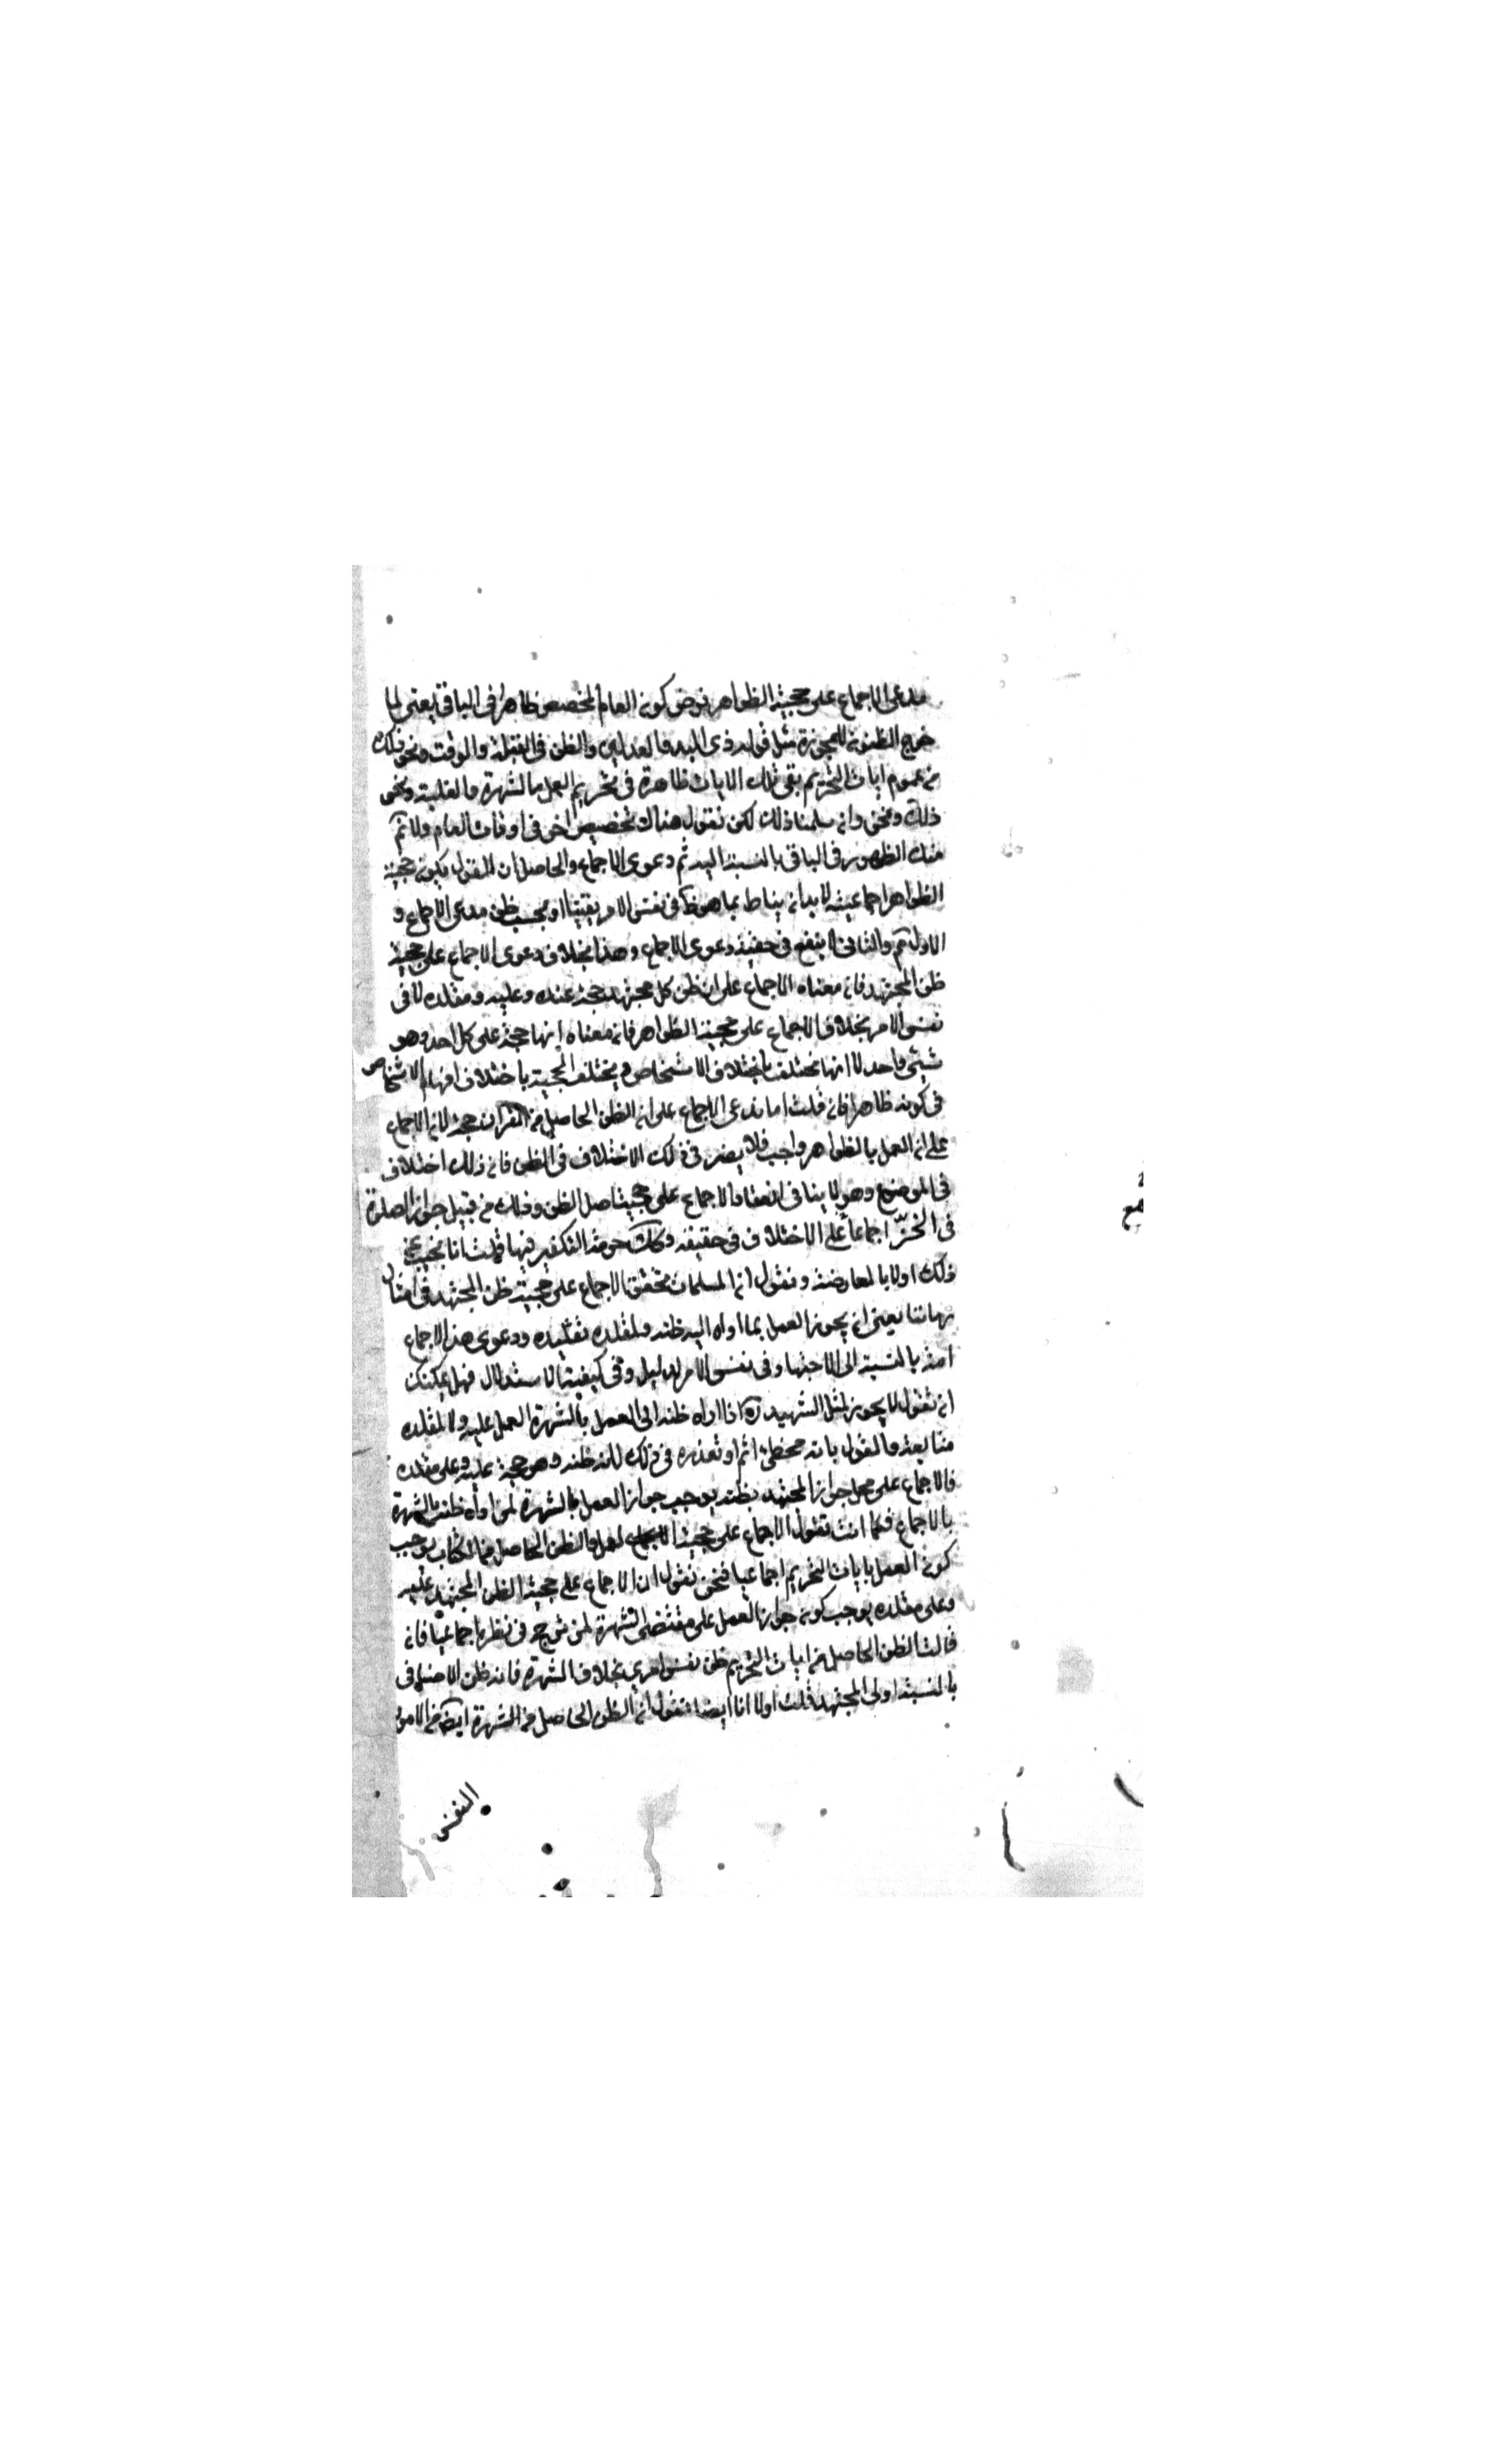 مدعى الاجماع على حجية الظواهر فرض كون العام المخصص ظاهرا فى الباقى يعنى لما
خرج الظنون المجوزة مثل قول ذى اليد والعدلين والظن فى القبلة والوقت ونحو ذلك
من عموم ايات التحريم بقى تلك الايات ظاهرة فى تحريم العمل بالشهرة والغلبة ونحو
ذلك ونحن وان سلمنا ذلك لكن نقول هناك تخصيص اخر فى اوقات العام ولا نم
منك الظهور فى الباقى بالنسبة اليه ثم دعوى الاجماع والحاصل ان القول بكون حجية
الظواهر اجماعية لابد ان يناط بما هو ظ فى نفس الامر يقينا او بحسب ظن مدعى الاجماع و
الاول مم والثانى لا ينفع فى حقية دعوى الاجماع وهذا بخلاف دعوى الاجماع على حجية
ظن المجتهد فان معناه الاجماع على ان ظن كل مجتهد حجة عنده وعليه ومقلده لا فى
نفس الامر بخلاف الاجماع على حجية الظواهر فان معناه انها حجة على كل احد وهو
شيئى واحد لا انها تختلف باختلاف الاشخاص ويختلف الحجية باختلاف افهام الاشخاص
فى كونه ظاهرا فان قلت اما ندعى الاجماع على ان الظن الحاصل من القرآن حجة لان الاجماع
على ان العمل بالظواهر واجب فلا يضر فى ذلك الاختلاف فى الظن فان ذلك اختلاف
فى الموضوع وهو لا ينافى انعقاد الاجماع على حجية اصل الظن وذلك من قبيل جواز الصلوة
فى الخزّ اجماعا على الاختلاف فى حقيقته وكك حرمة التكفير فيها قلت انا نجيب عن
ذلك اولا بالمعارضة ونقول ان المسلمات تحقق الاجماع على حجية ظن المجتهد فى امثال
زماننا يعنى ان يجوز العمل بما اداه اليه ظنه ولمقلده تقليده ودعوى هذا الاجماع
امنة بالنسبة الى الاجتهاد فى نفس الامر لدليل وفى كيفية الاستدلال فهل يمكنك
ان تقول لا يجوز لمثل الشهيد ره اذا اداه ظنه الى العمل بالشهرة العمل عليه ولا لمقلده
متابعة والقول بانه مخطئ اثم او تعذره فى ذلك لانه ظنه وهو حجة عليه وعلى مقلده
فالاجماع على جواز المجتهد بظنه يوجب جواز العمل بالشهرة لمن اداه ظنه بالشهرة
بالاجماع فكما انت تقول الاجماع على حجية العمل بالظن الحاصل من الكتاب يوجب
كون العمل بايات التحريم اجماعيا فنحن نقول ان الاجماع على حجية الظن المجتهد عليه
وعلى مقلده يوجب كون جواز العمل على مقتضى الشهرة لمن ترجح فى نظره اجماعيا فان
قالت الظن الحاصل من ايات التحريم ظن نفس امرى بخلاف الشهرة فانه ظن الاضافى
بالنسبة اولى المجتهد قلت اولا انا ايضا نقول ان الظن الحاصل من الشهرة ايضا من الامور
النفس